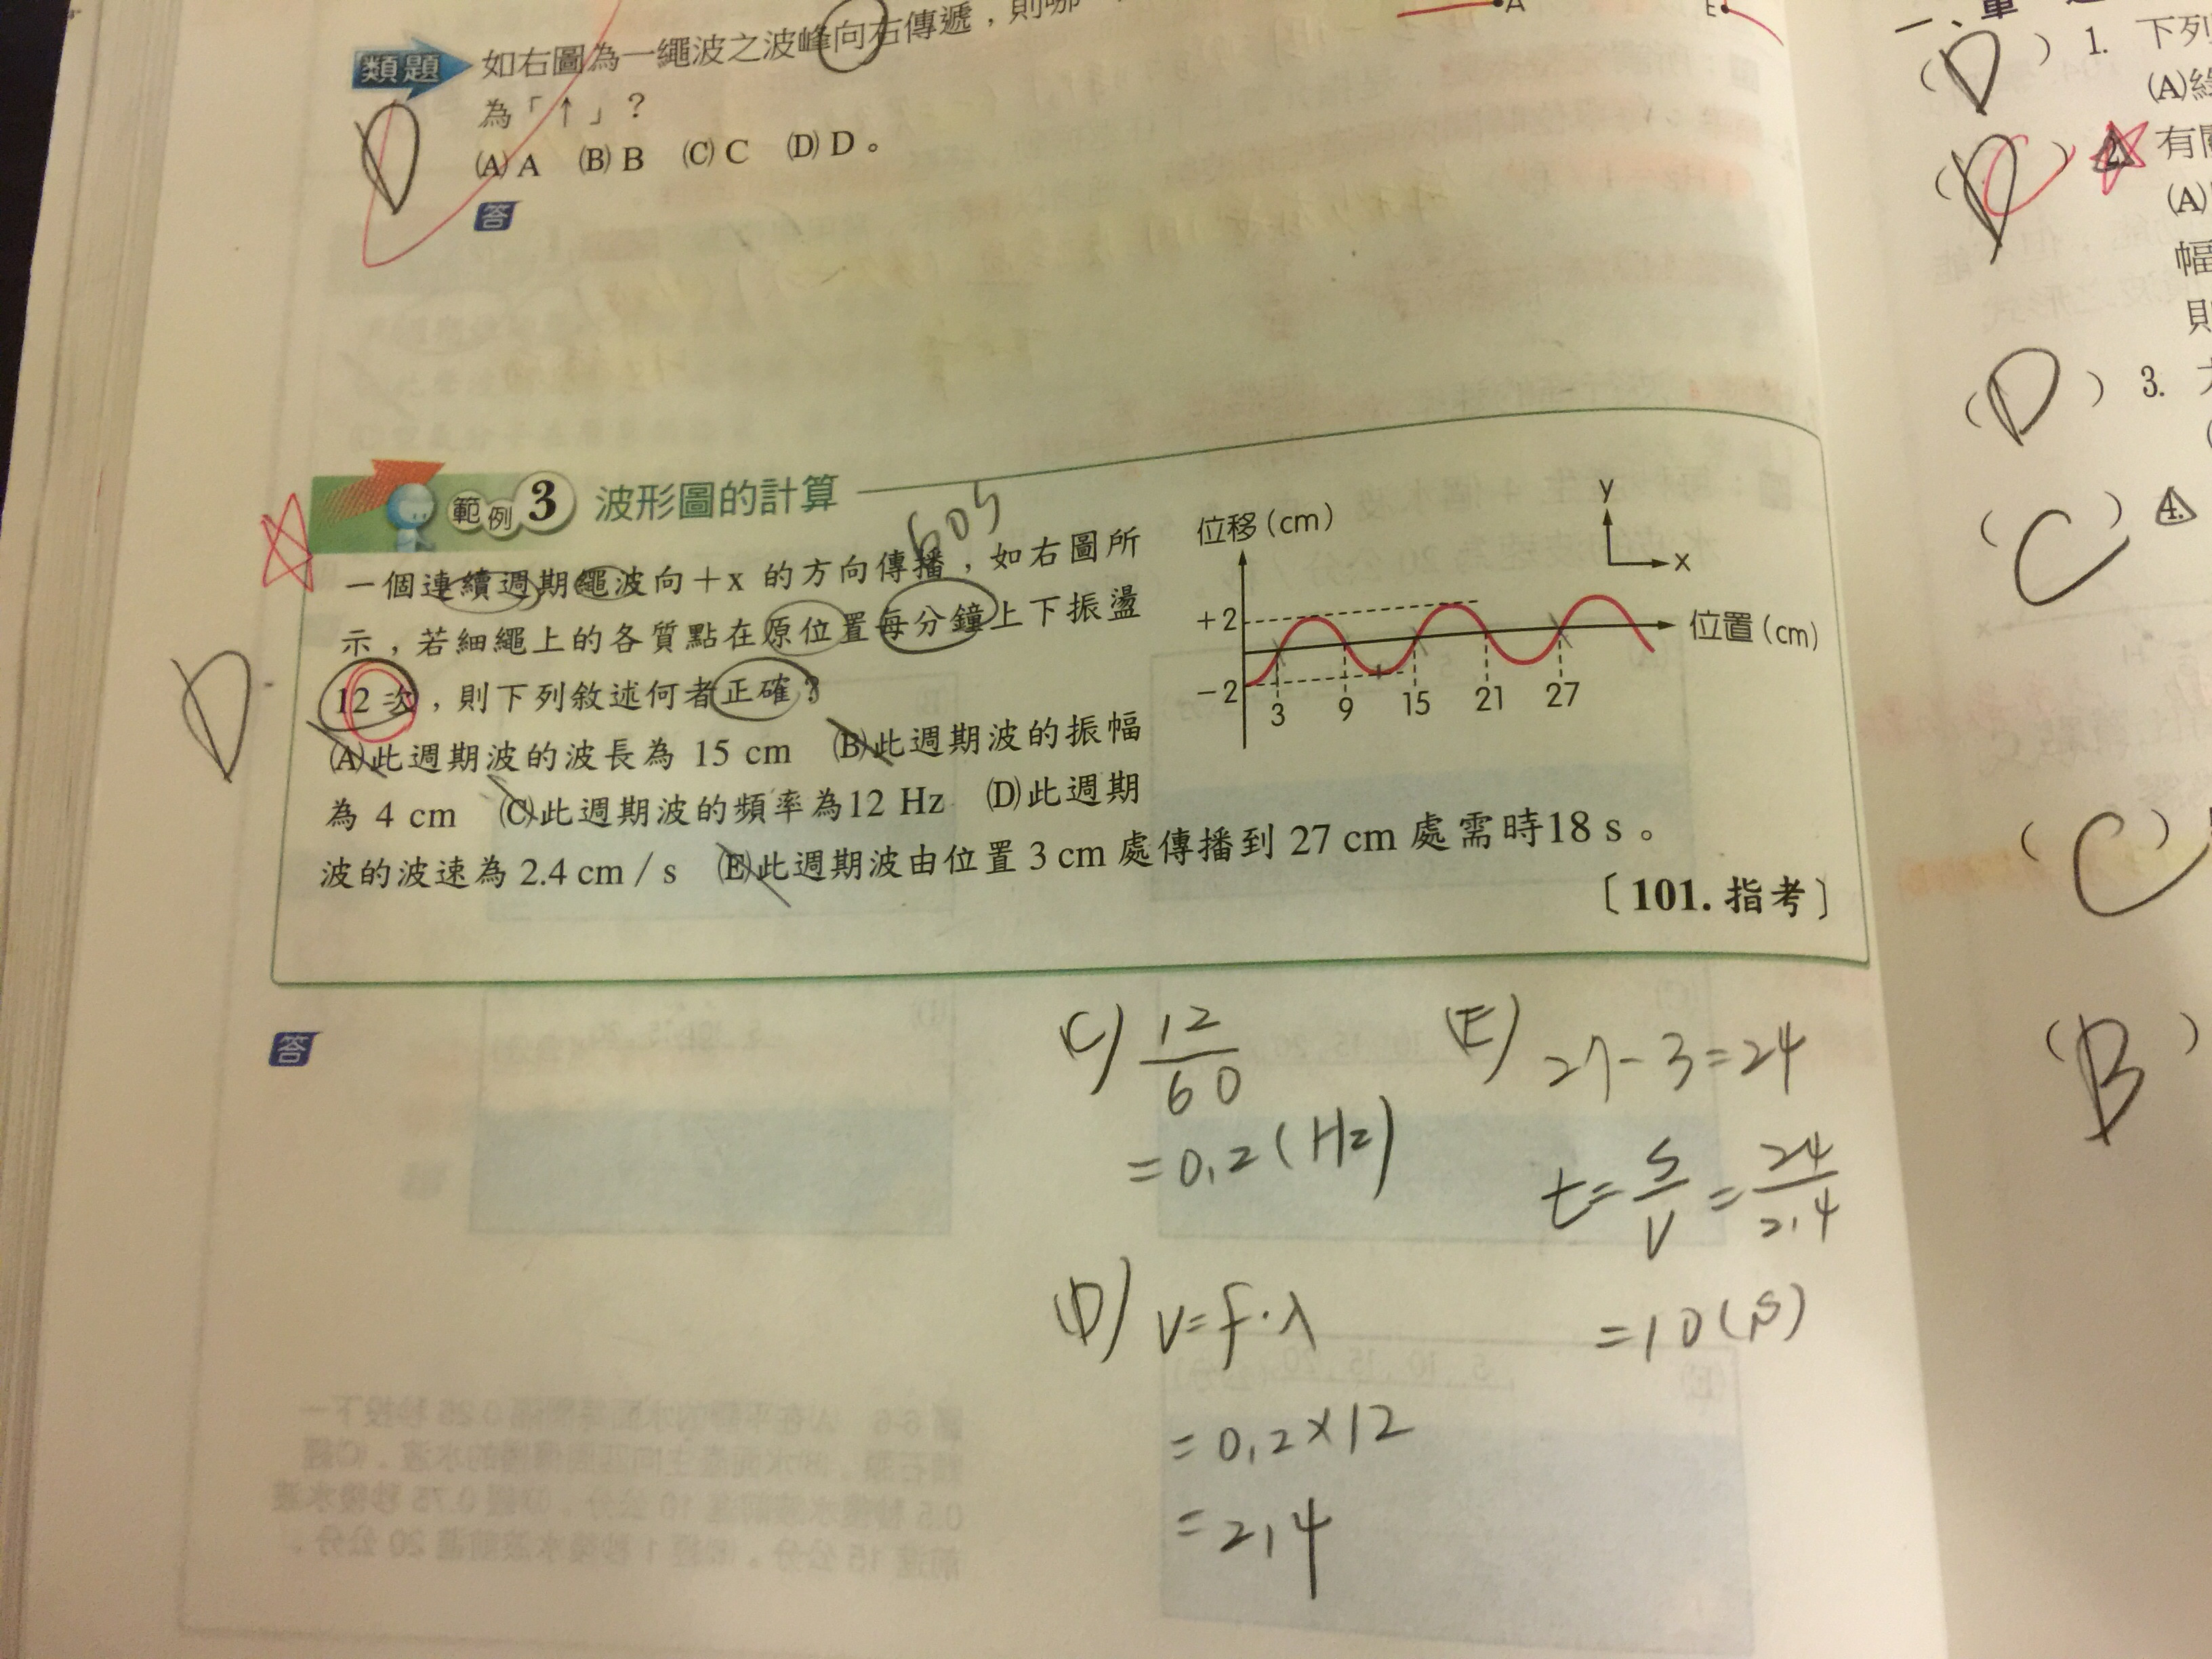 類題 如右圖為一繩波之波峰向右傳遞，則哪
為「↑」？
(A) A (B) B (C) C (D) D。
D
答
A
E
範例 3 波形圖的計算
60s
一個連續週期繩波向＋x 的方向傳播，如右圖所
示，若細繩上的各質點在原位置每分鐘上下振盪
12 次，則下列敘述何者正確？
(A)此週期波的波長為 15 cm (B)此週期波的振幅
為 4 cm (C)此週期波的頻率為12 Hz (D)此週期
波的波速為 2.4 cm / s (E)此週期波由位置 3 cm 處傳播到 27 cm 處需時18 s。
〔101. 指考〕
D
位移(cm)
y
x
+2
-2
3 9 15 21 27
位置(cm)
答
(C) 12/60
=0.2(Hz)
(D) V=f·λ
=0.2×12
=2.4
(E) 27-3=24
t=S/V=24/2.4
=10(s)
一、單
(D) 1. 下列
(A)綠
(C) 2. 有關
(A)
幅
則
(D) 3.
(C) 4.
(C)
(B)